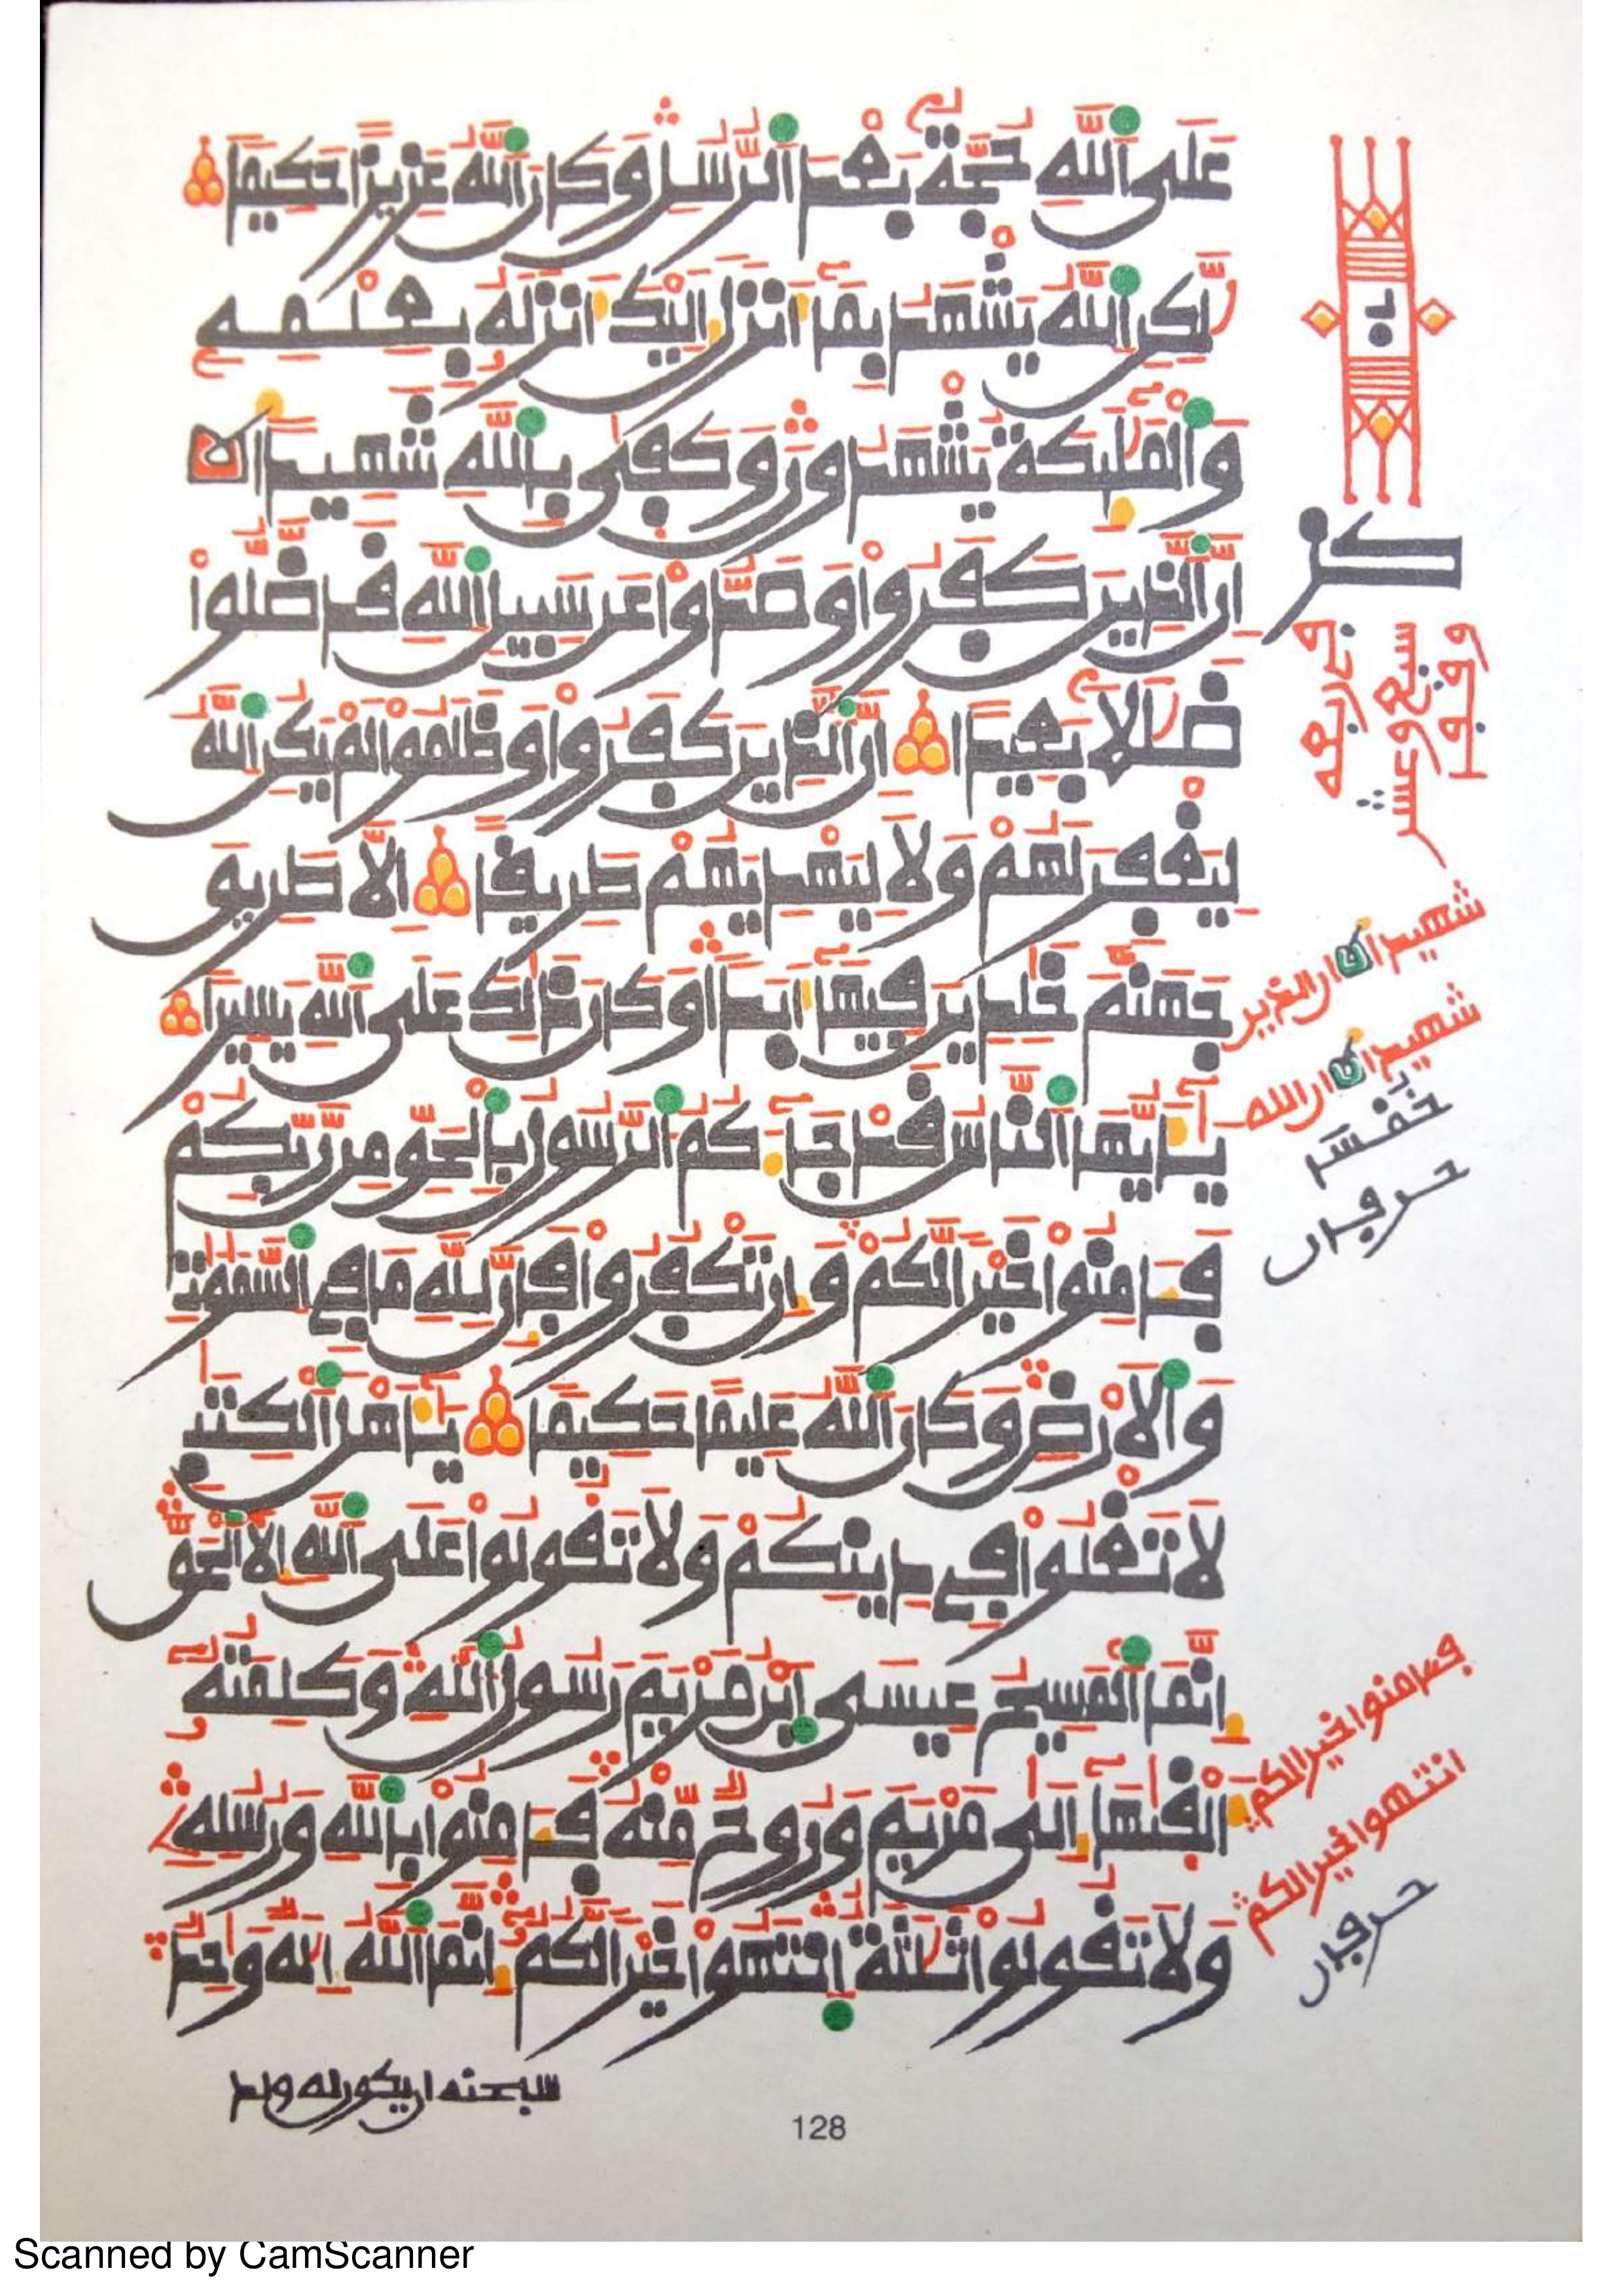 عَلَى ٱللَّهِ حُجَّةٌ بَعْدَ ٱلرُّسُلِ وَكَانَ ٱللَّهُ عَزِيزًا حَكِيمًا
لَّٰكِنِ ٱللَّهُ يَشْهَدُ بِمَآ أَنزَلَ إِلَيْكَ أَنزَلَهُۥ بِعِلْمِهِۦ
وَٱلْمَلَٰٓئِكَةُ يَشْهَدُونَ وَكَفَىٰ بِٱللَّهِ شَهِيدًا
إِنَّ ٱلَّذِينَ كَفَرُوا۟ وَصَدُّوا۟ عَن سَبِيلِ ٱللَّهِ قَد ضَّلُّوا۟
ضَلَٰلًا بَعِيدًا إِنَّ ٱلَّذِينَ كَفَرُوا۟ وَظَلَمُوا۟ لَمْ يَكُنِ ٱللَّهُ
لِيَغْفِرَ لَهُمْ وَلَا لِيَهْدِيَهُمْ طَرِيقًا إِلَّا طَرِيقَ
جَهَنَّمَ خَٰلِدِينَ فِيهَآ أَبَدًا وَكَانَ ذَٰلِكَ عَلَى ٱللَّهِ يَسِيرًا
يَٰٓأَيُّهَا ٱلنَّاسُ قَدْ جَآءَكُمُ ٱلرَّسُولُ بِٱلْحَقِّ مِن رَّبِّكُمْ
فَـَٔامِنُوا۟ خَيْرًا لَّكُمْ وَإِن تَكْفُرُوا۟ فَإِنَّ لِلَّهِ مَا فِي ٱلسَّمَٰوَٰتِ
وَٱلْأَرْضِ وَكَانَ ٱللَّهُ عَلِيمًا حَكِيمًا يَٰٓأَهْلَ ٱلْكِتَٰبِ
لَا تَغْلُوا۟ فِي دِينِكُمْ وَلَا تَقُولُوا۟ عَلَى ٱللَّهِ إِلَّا ٱلْحَقَّ
إِنَّمَا ٱلْمَسِيحُ عِيسَى ٱبْنُ مَرْيَمَ رَسُولُ ٱللَّهِ وَكَلِمَتُهُۥٓ
أَلْقَىٰهَآ إِلَىٰ مَرْيَمَ وَرُوحٌ مِّنْهُ فَـَٔامِنُوا۟ بِٱللَّهِ وَرُسُلِهِۦ
وَلَا تَقُولُوا۟ ثَلَٰثَةٌ ٱنتَهُوا۟ خَيْرًا لَّكُمْ إِنَّمَا ٱللَّهُ إِلَٰهٌ وَٰحِدٌ
سبحنه ان يكون له ولد
128
شهيدا ان الذين
شهيدا ان الله
حرفان
فـامنوا خيرا لكم
انتهوا خيرا لكم
حرفان
Scanned by CamScanner